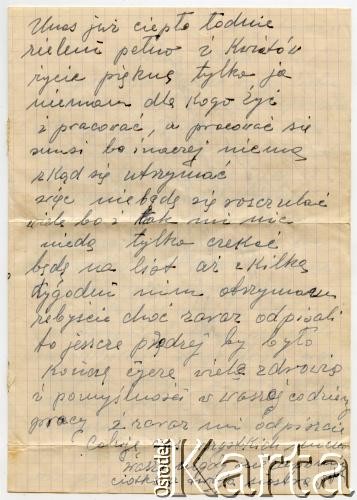 Unas już ciepło ładnie
zieleni pełno i kwiatów
życie piękną tylko ja
niemam dla kogo żyć
i pracować, a pracować się
musi bo inaczej niema
skąd się utrzymać
więc niebędę się rosczulać
widę bo i tak mi nic
nieda tylko czekać
będę na list aż kilka
tygodni nim otrzymam
żebyście choć zaraz odpisali
to jeszcze prędzej by było
Kończę życzę wiele zdrowia
i pomyślności w waszej codzieny
pracy i zaraz mi odpiszcie
Całuję
wasza
ciotka
Ośrodek
Karta